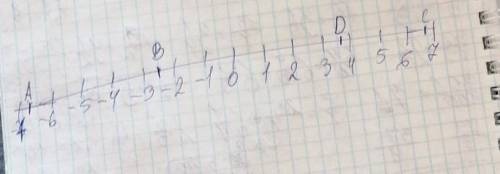 A B D C
-7 -6 -5 -4 -3 -2 -1 0 1 2 3 4 5 6 7